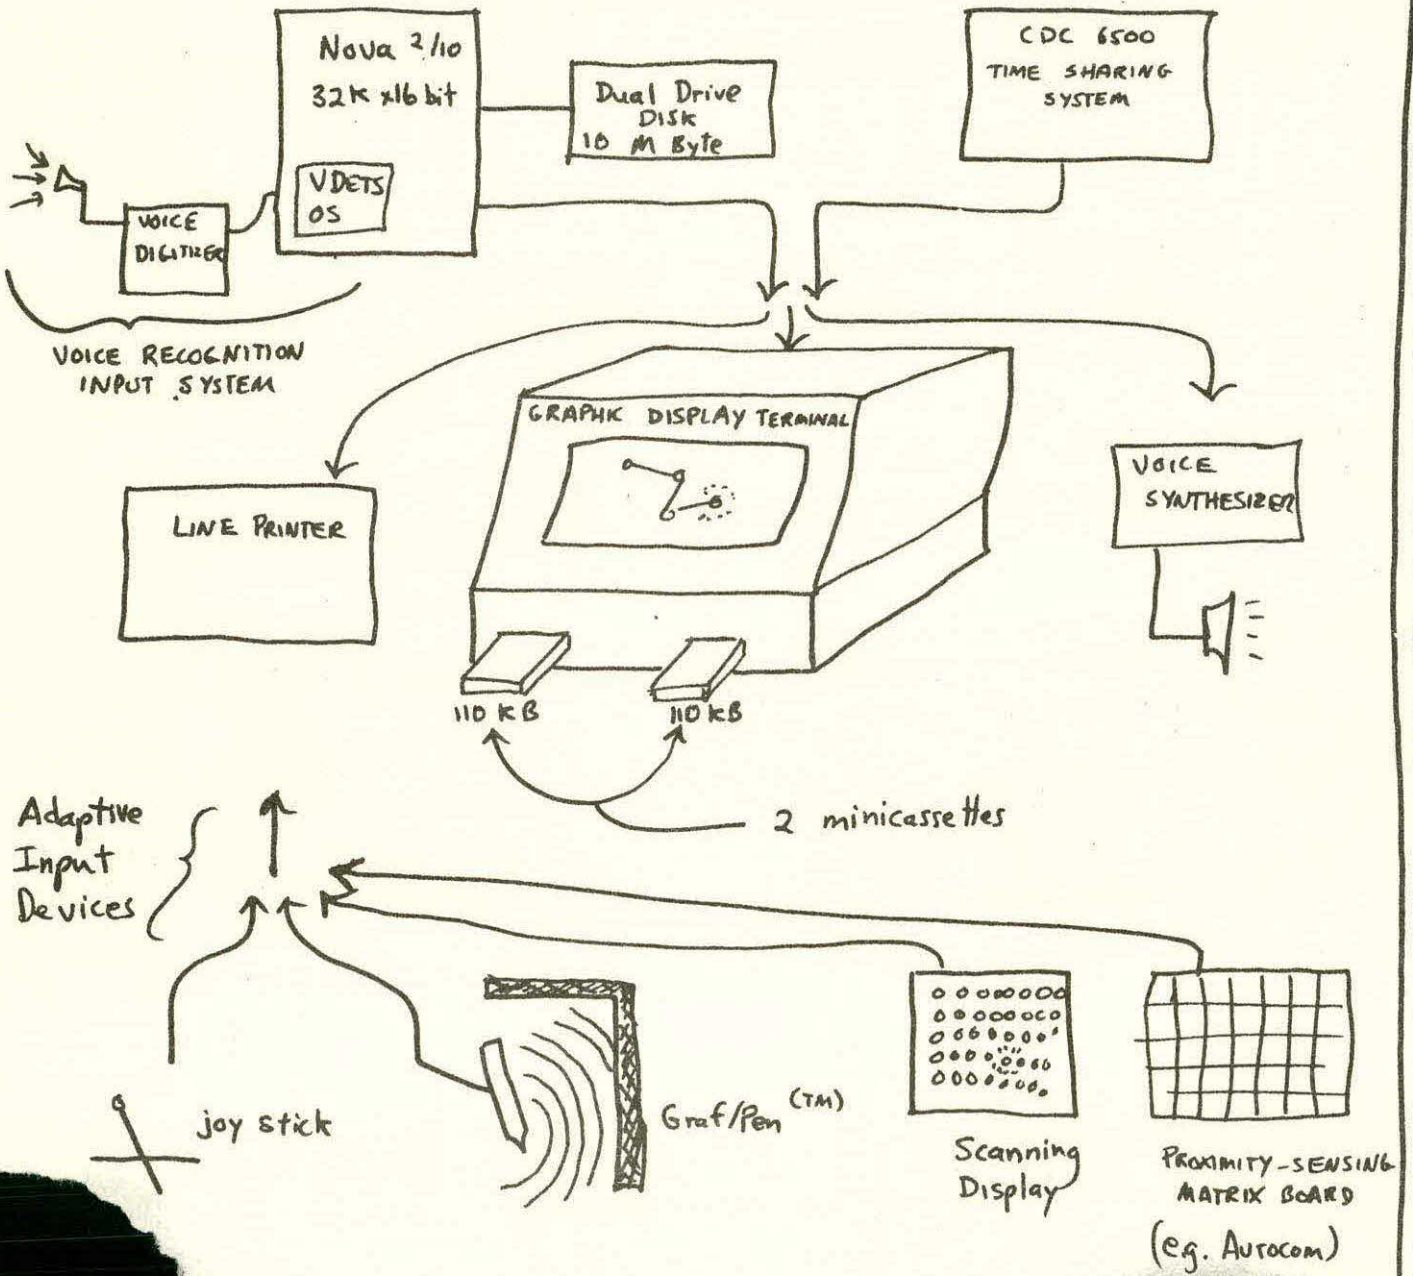 Nova 2/10
32K x16 bit
VDETS
OS
Dual Drive
DISK
10 M Byte
CDC 6500
TIME SHARING
SYSTEM
VOICE
DIGITIZER
VOICE RECOGNITION
INPUT SYSTEM
GRAPHIC DISPLAY TERMINAL
LINE PRINTER
VOICE
SYNTHESIZER
110 KB
110 KB
2 minicassettes
Adaptive
Input
Devices
joy stick
Graf/Pen (TM)
Scanning
Display
PROXIMITY-SENSING
MATRIX BOARD
(e.g. AUTOCOM)